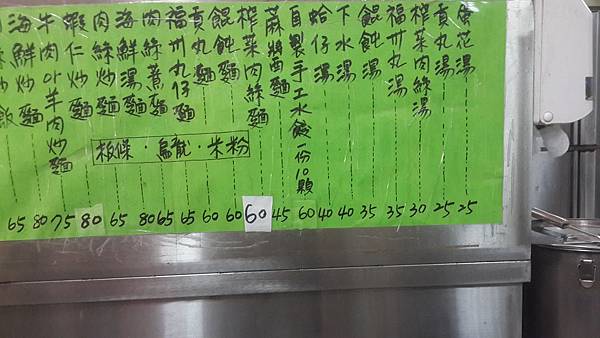 蛋花湯 25
貢丸湯 25
榨菜肉絲湯 30
福州丸湯 35
餛飩湯 35
下水湯 40
蛤仔湯 40
自製手工水餃一份10顆 60
蔴醬麵 45
榨菜肉絲麵 60
餛飩麵 60
貢丸麵 60
福州丸仔麵 65
肉絲蔥麵 65
海鮮湯麵 80
肉絲炒麵 65
蝦仁炒麵 80
牛肉or羊肉炒麵 75
海鮮炒麵 80
炒飯 65
板條・烏龍・米粉